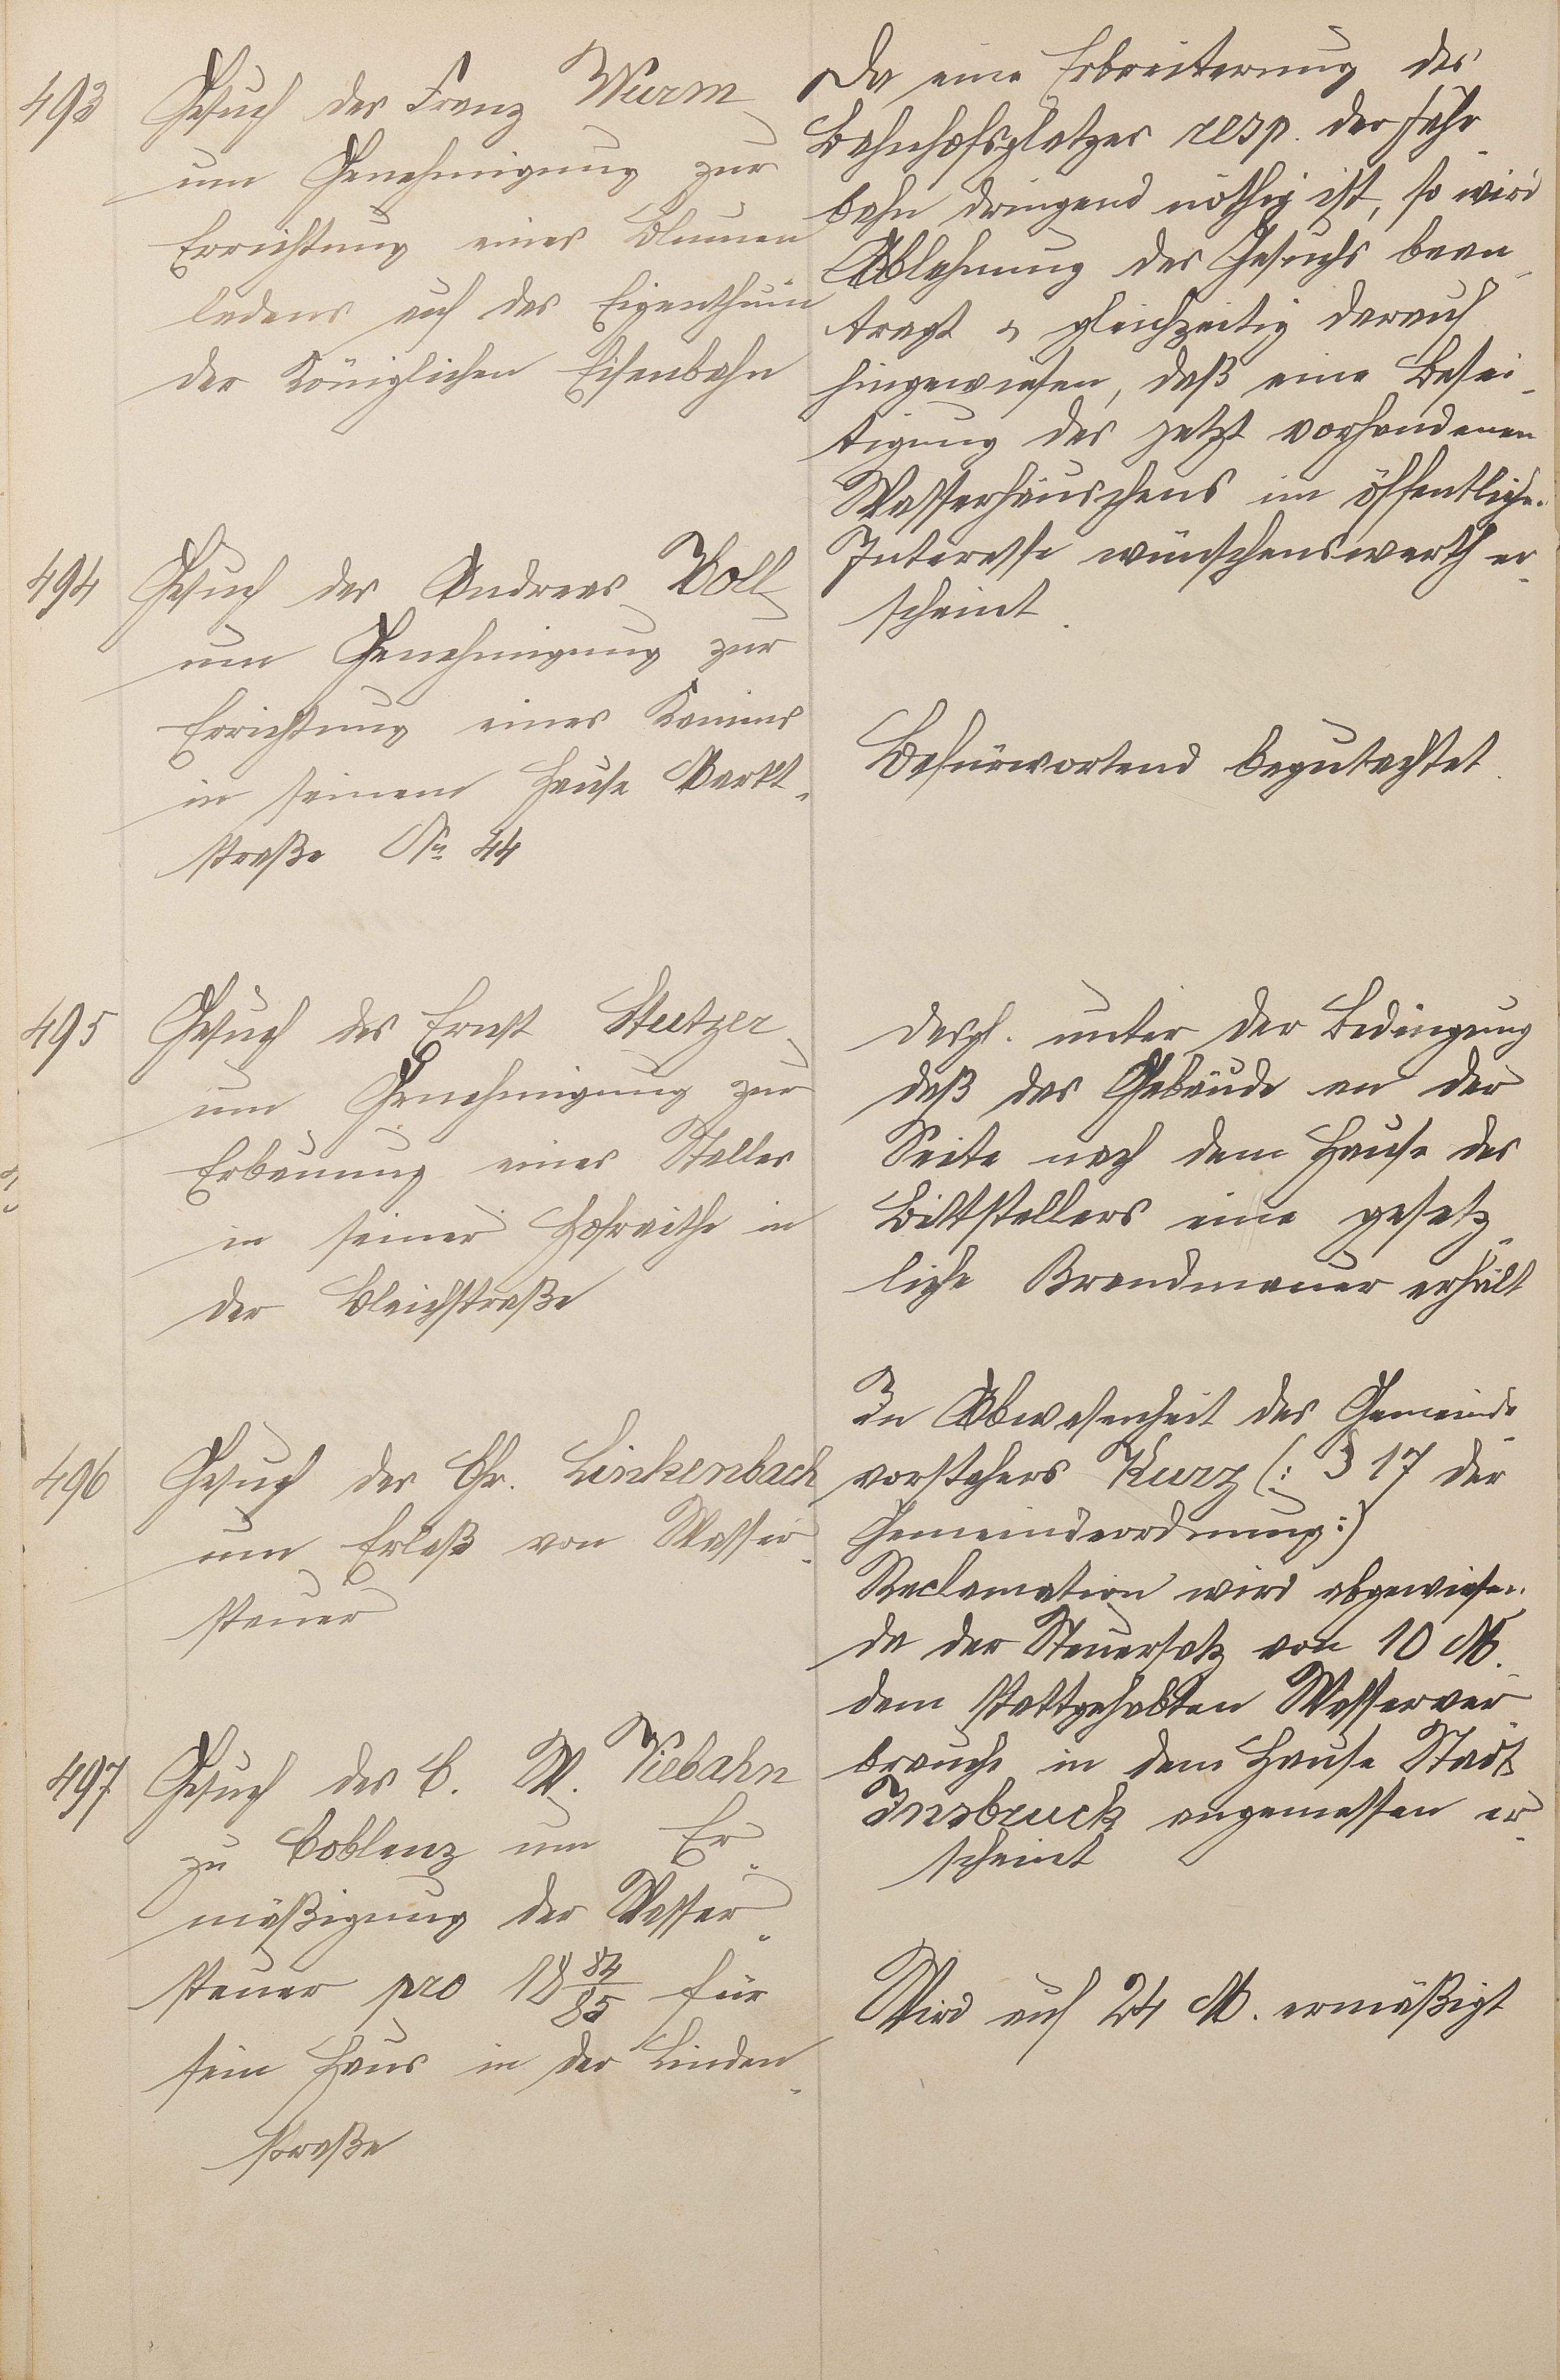 493
Gesuch des Franz Wurm
um Genehmigung zur
Errichtung eines Blumen
ladens auf das Eigenthum
der Königlichen Eisenbahn
Da eine Erbreiterung des
Bahnhofsplatzes resp. der Fahr-
bahn dringend nöthig ist, so wird
Ablehnung des Gesuchs bean-
tragt & gleichzeitig darauf
hingewiesen, daß eine Besei-
tigung des jetzt vorhandenen
Wasserhäuschens im öffentlichen
Interesse wünschenswerth er-
scheint.
494
Gesuch des Andreas Noll
um Genehmigung zur
Errichtung eines Kamins
in seinem Hause Markt-
straße No 44
Befürwortend begutachtet.
495
Gesuch des Ernst Stutzer
um Genehmigung zur
Erbauung eines Stalles
in seiner Hofraithe in
der Bleichstraße
desgl. unter der Bedingung
daß das Gebäude an der
Seite nach dem Hause des
Bittstellers eine gesetz-
liche Brandmauer erhält
496
Gesuch des Chr. Linkenbach
um Erlaß von Wasser-
steuer
In Abwesenheit des Gemeinde-
vorstehers Kurz (: § 17 der
Gemeindeordnung :)
Reclamation wird abgewiesen
da der Steuersatz von 10 M.
dem stattgehabten Wasserver-
brauche in dem Hause Stadt
Insbruck angemessen er-
scheint
497
Gesuch des C. W. Viebahn
zu Coblenz um Er-
mäßigung der Wasser-
steuer pro 18 84/85 für
sein Haus in der Linden-
straße
Wird auf 24 M. ermäßigt